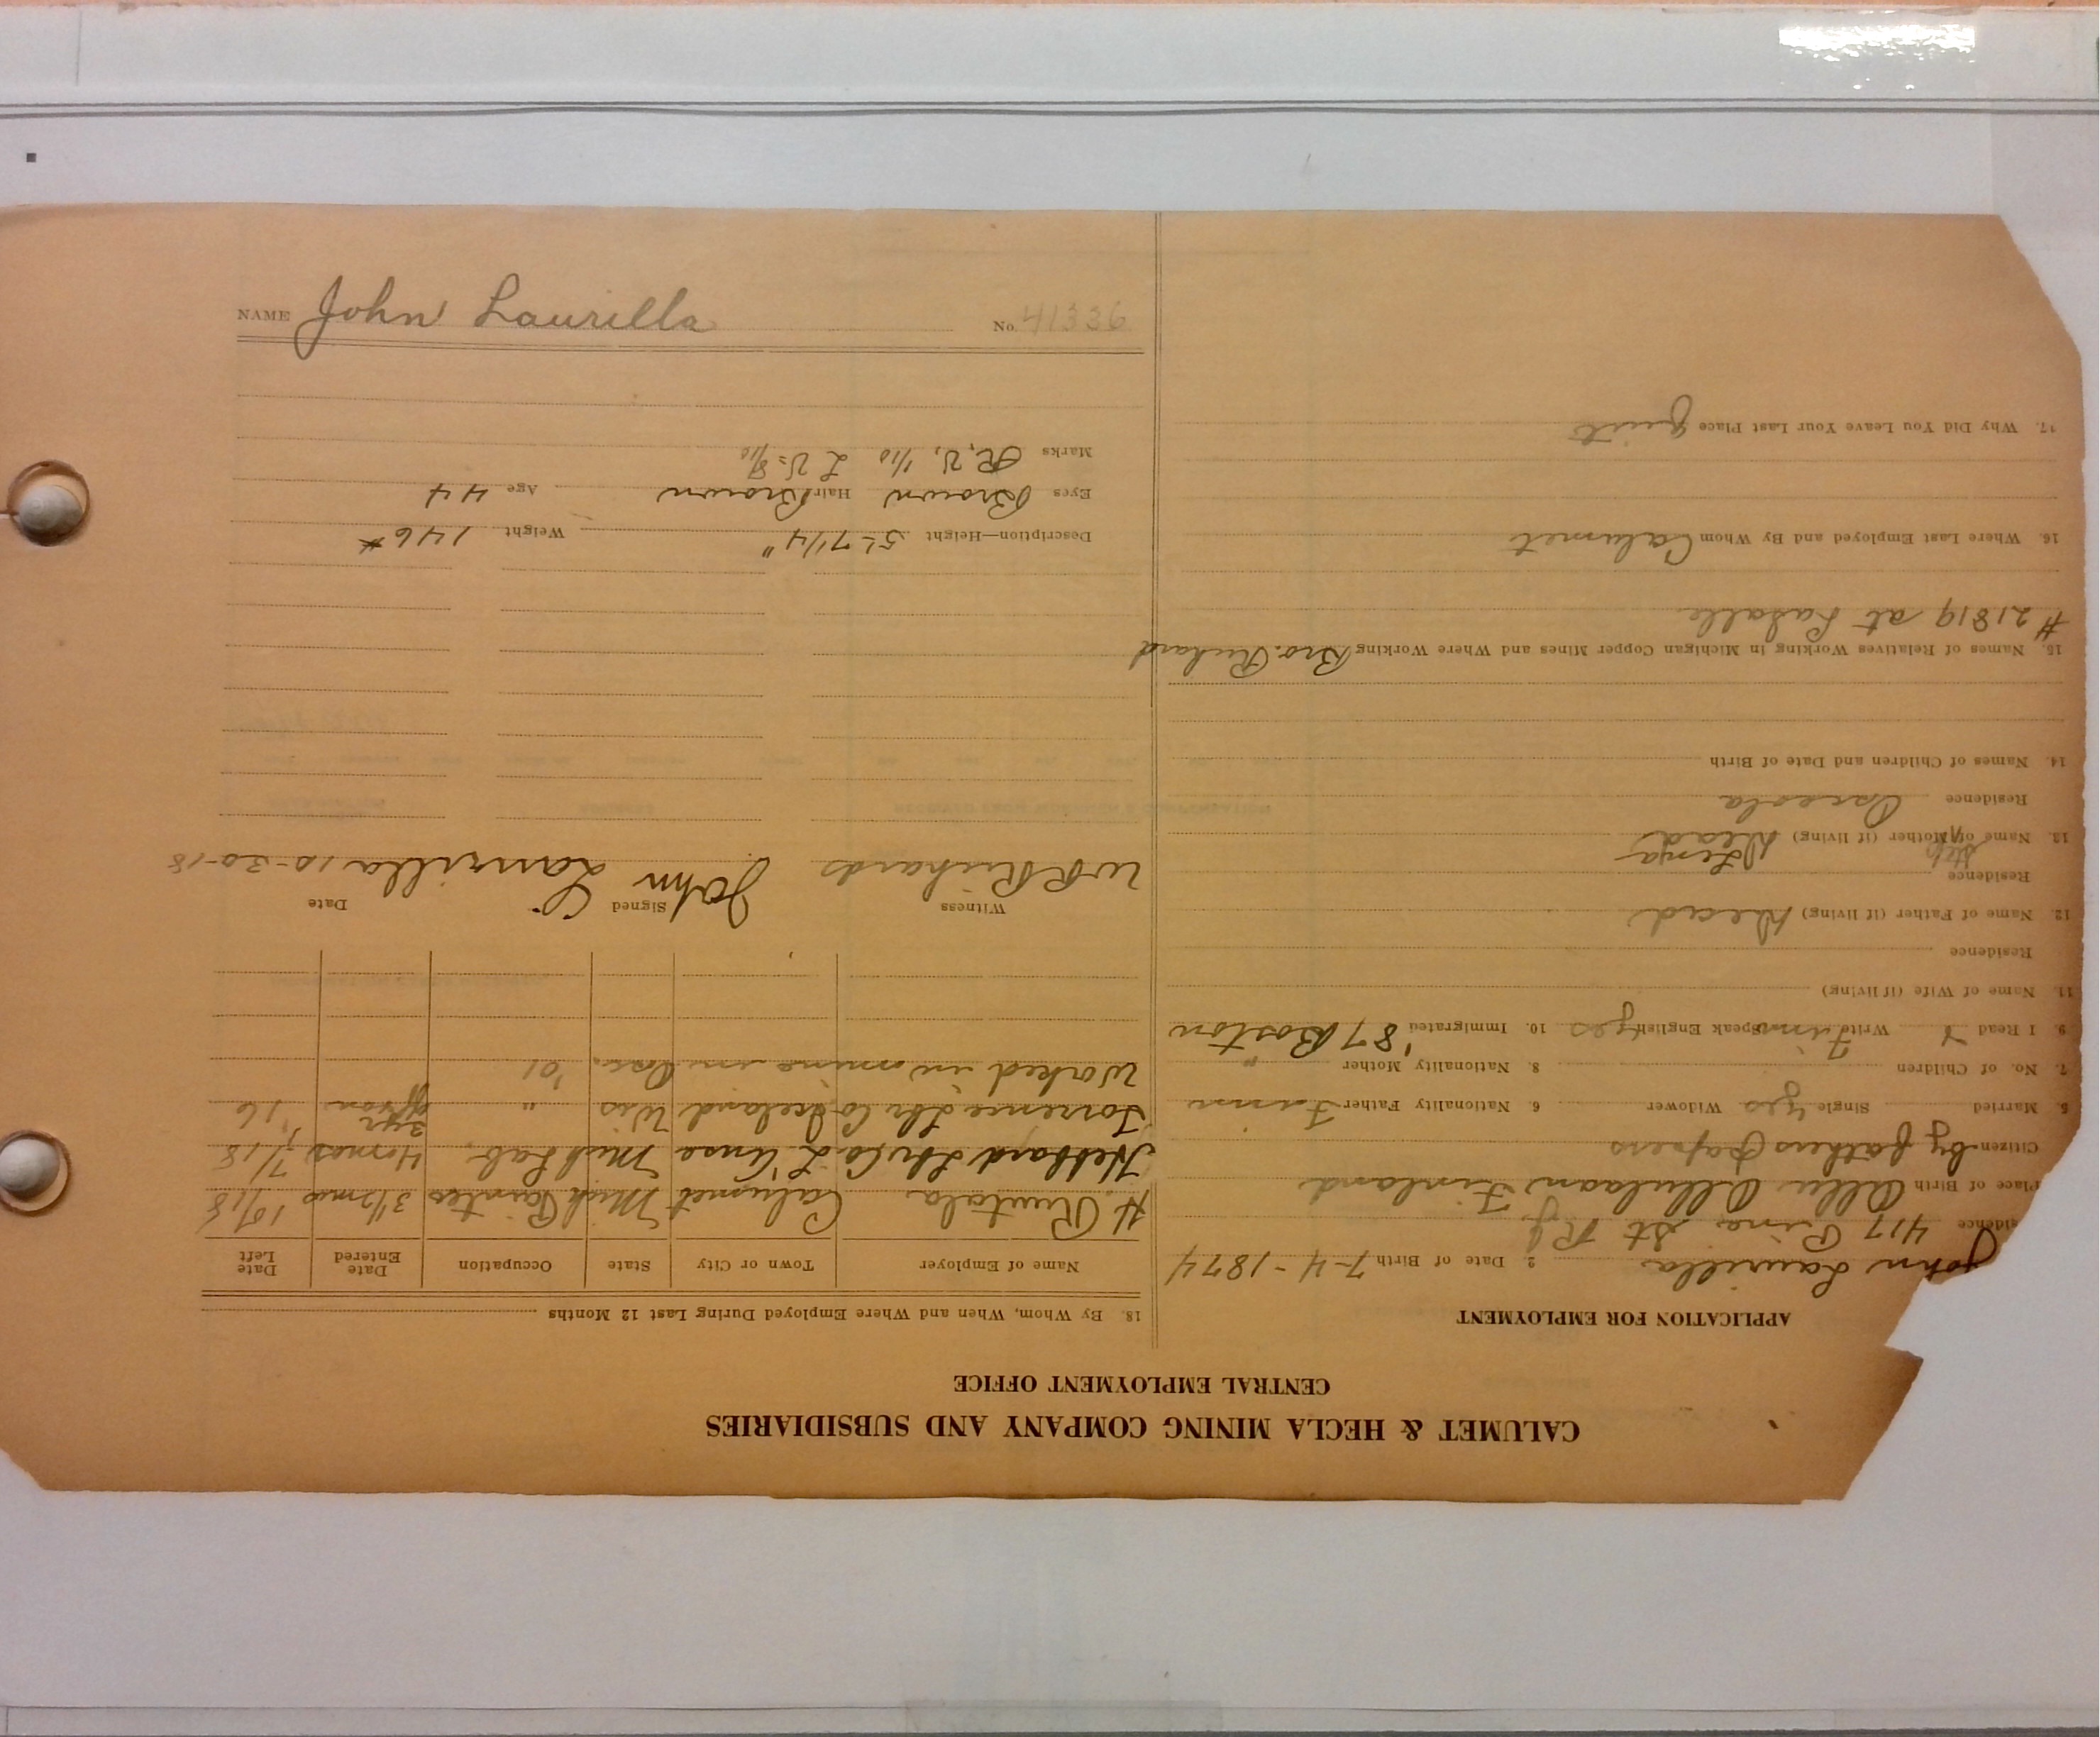 CALUMET & HECLA MINING COMPANY AND SUBSIDIARIES
CENTRAL EMPLOYMENT OFFICE
APPLICATION FOR EMPLOYMENT
John Laurilla 2. Date of Birth 7-4-1874
idence 417 Pine St
Place of Birth Finland
Citizen by fathers papers
5. Married Single yes Widower 6. Nationality Father Finn
7. No. of Children 8. Nationality Mother "
9. I Read Write Finn Speak English yes 10. Immigrated '87 Boston
11. Name of Wife (if living)
Residence
12. Name of Father (if living) Dead
Residence
13. Name of Mother (if living) Dead
Step
Residence Osceola
14. Names of Children and Date of Birth
15. Names of Relatives Working in Michigan Copper Mines and Where Working Bro. Richard
# 21819 at Lasalle
16. Where Last Employed and By Whom Calumet
17. Why Did You Leave Your Last Place Quit
18. By Whom, When and Where Employed During Last 12 Months
Name of Employer Town or City State Occupation Date Entered Date Left
H. Ruutala Calumet Mich Painter 3 1/2 mos 10/18
Hebbard Lbr Co L'Anse Mich Lab. 4 mos 7/18
Torrence Lbr Co Wis " 3 yr off & on '16
Worked in mine in '01
Witness Signed Date
W R Richards John Laurilla 10-30-18
Description—Height 5'-7 1/4" Weight 146 #
Eyes Brown Hair Brown Age 44
Marks R.V. 1/10 L V= 8/10
NAME John Laurilla No. 41336